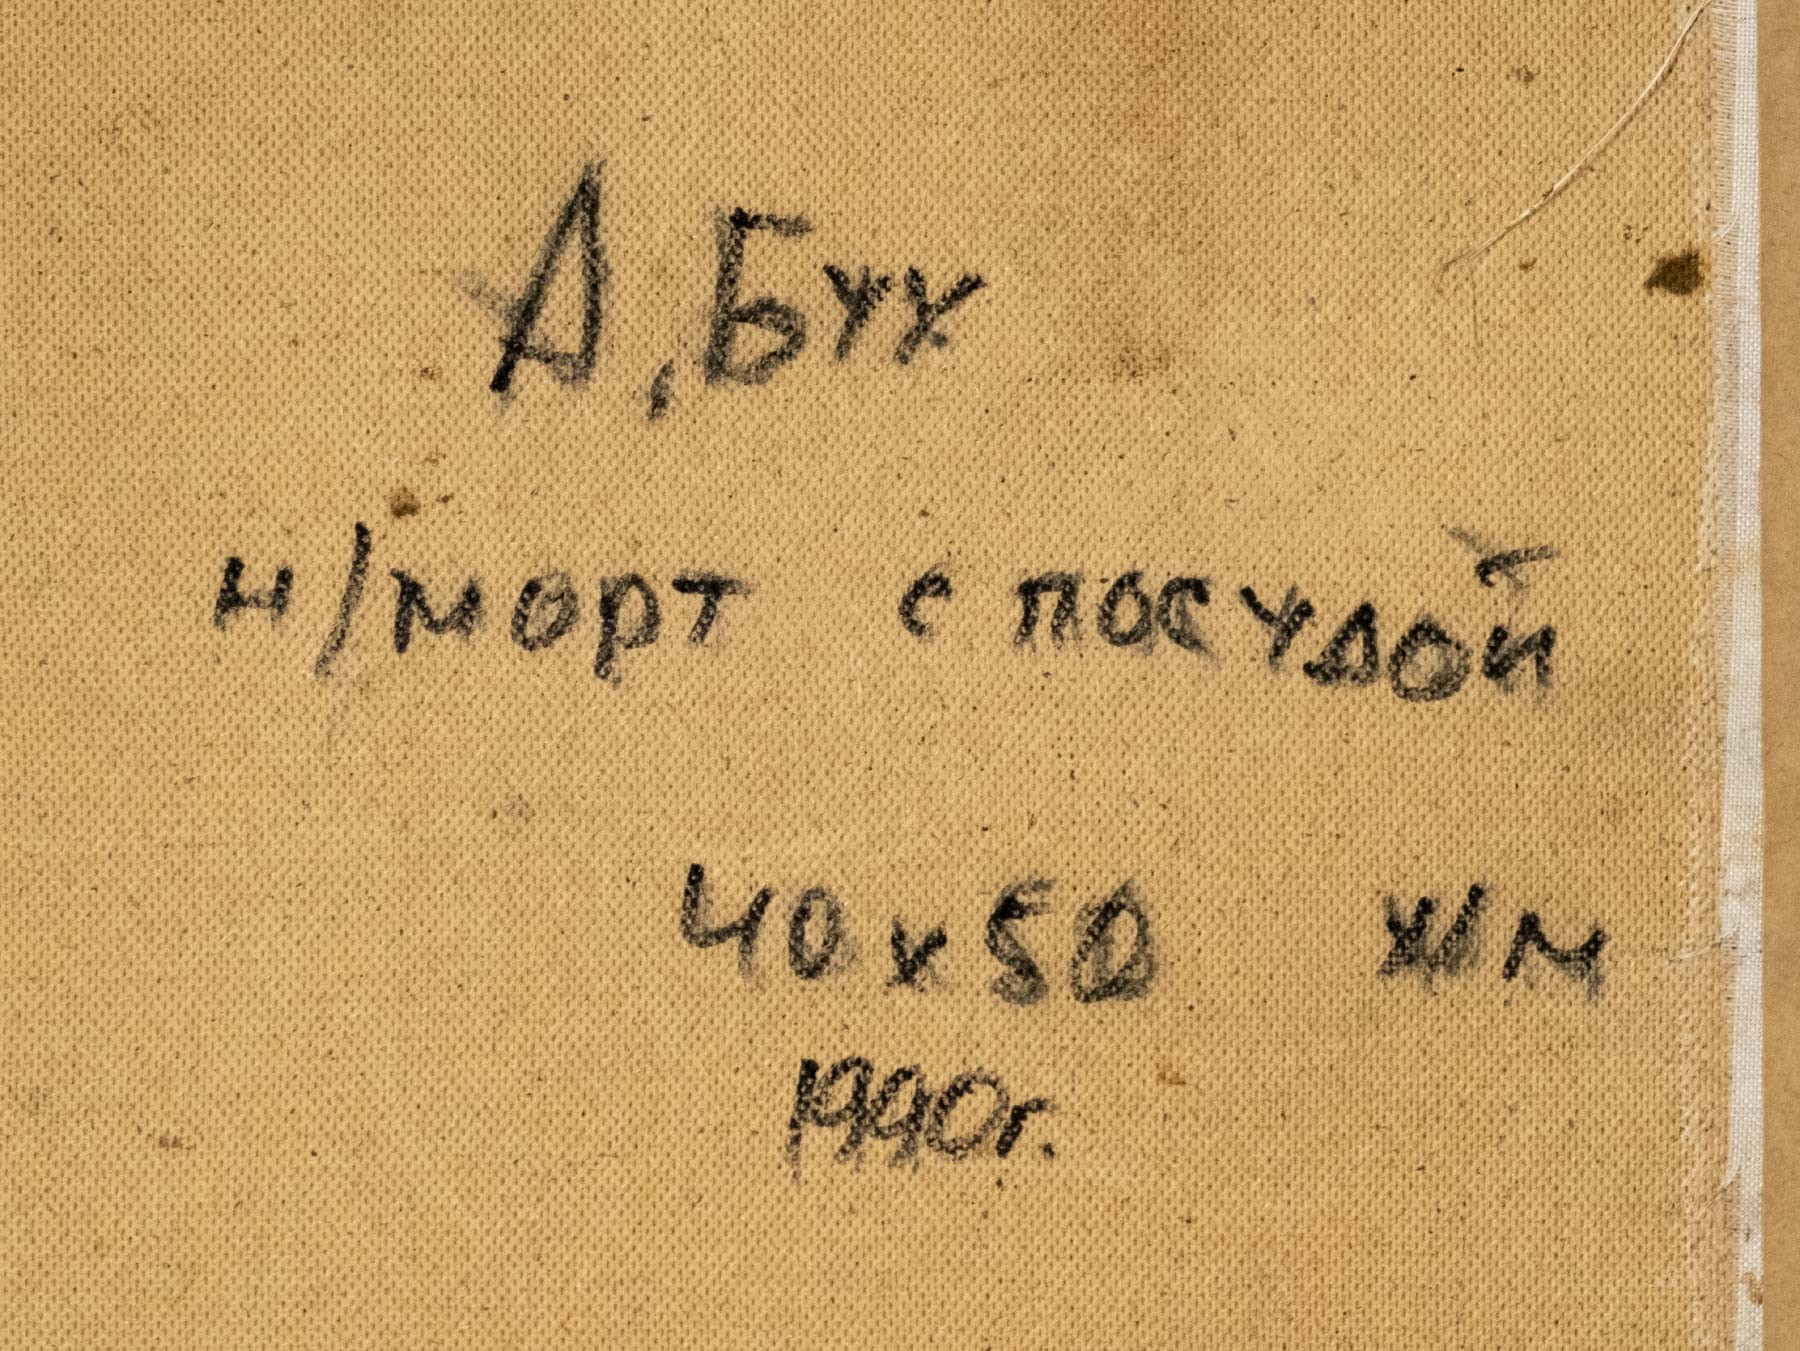 А. Бух
н/морт с посудой
40х50 х/м
1990г.